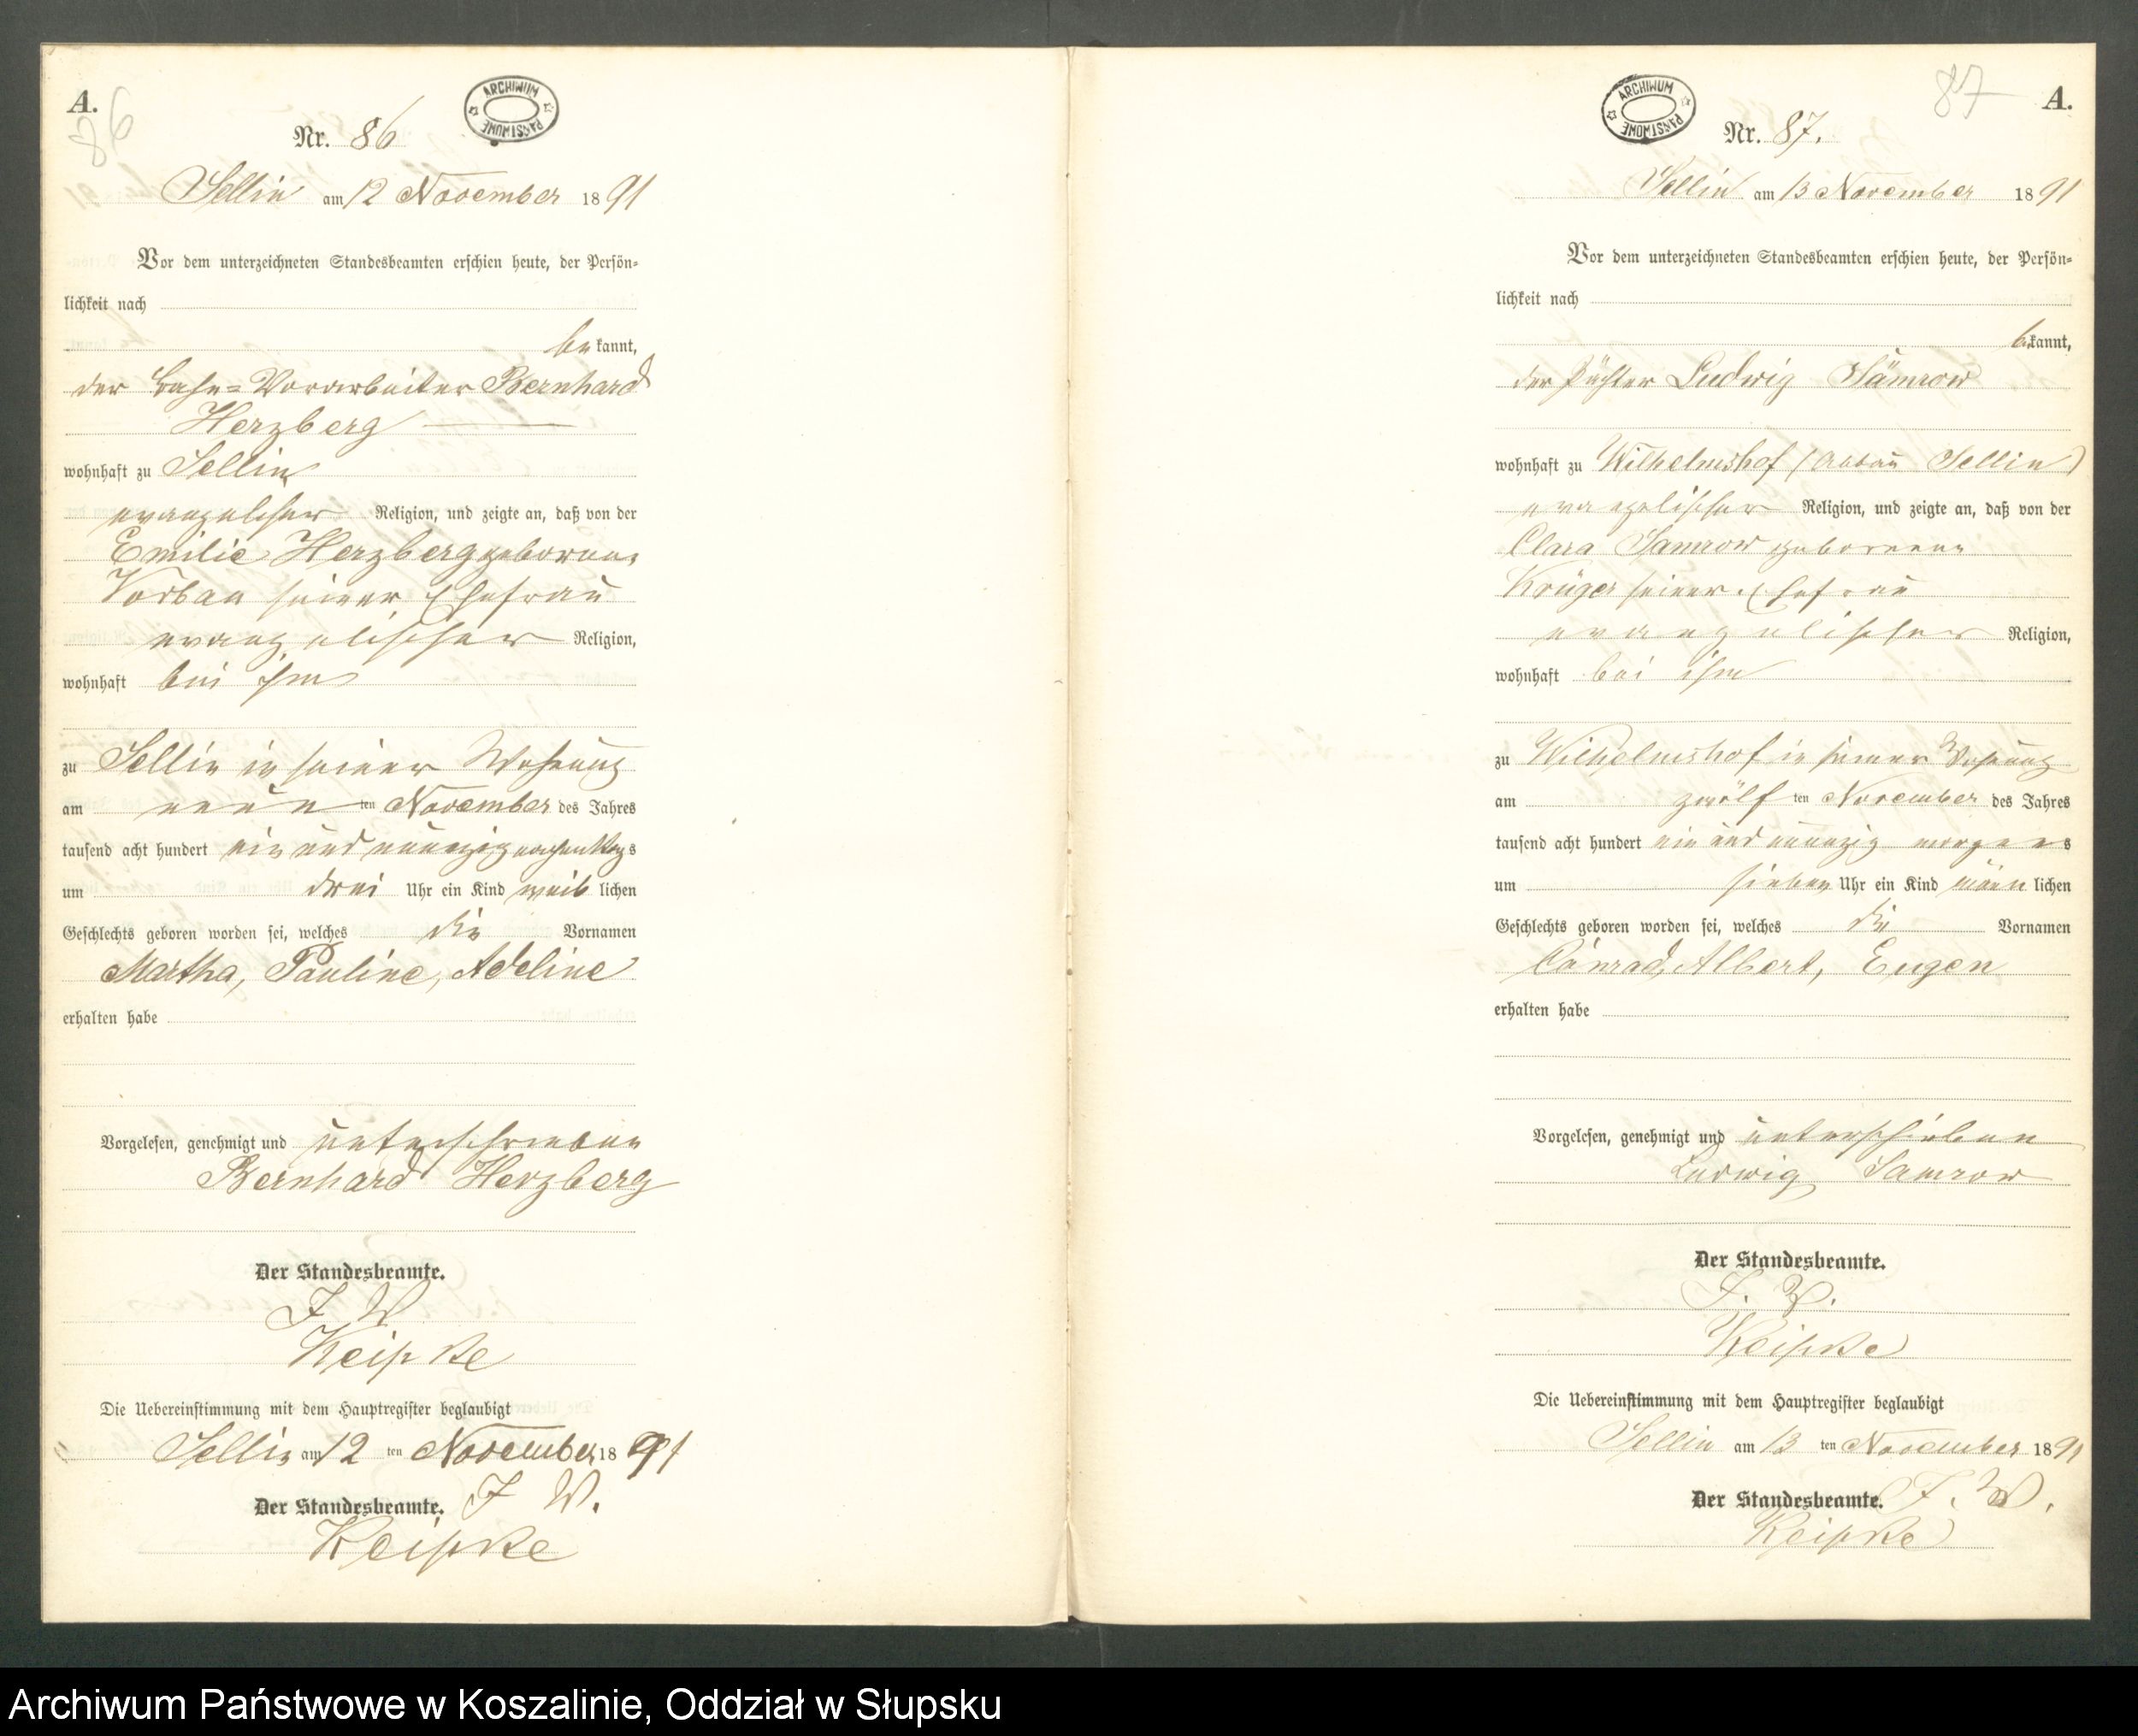 A.
86
ARCHIWUM PAŃSTWOWE
Nr. 86
Sellin am 12 November 1891
Vor dem unterzeichneten Standesbeamten erschien heute, der Persön-
lichkeit nach
be kannt,
der Bahn-Vorarbeiter Bernhard
Herzberg
wohnhaft zu Sellin
evangelischer Religion, und zeigte an, daß von der
Emilie Herzberg geborene
seiner Ehefrau
evangelischer Religion,
wohnhaft bei ihm
zu Sellin in seiner Wohnung
am neun ten November des Jahres
tausend acht hundert ein und neunzig nachmittags
um drei Uhr ein Kind weib lichen
Geschlechts geboren worden sei, welches die Vornamen
Martha, Pauline, Adeline
erhalten habe
Vorgelesen, genehmigt und unterschrieben
Bernhard Herzberg
Der Standesbeamte.
J W
Keipke
Die Uebereinstimmung mit dem Hauptregister beglaubigt
Sellin am 12 ten November 1891
Der Standesbeamte. J W.
Keipke
87
A.
ARCHIWUM PAŃSTWOWE
Nr. 87.
Sellin am 13 November 1891
Vor dem unterzeichneten Standesbeamten erschien heute, der Persön-
lichkeit nach
be kannt,
der Pächter Ludwig Samrow
wohnhaft zu Wilhelmshof (Abbau Sellin)
evangelischer Religion, und zeigte an, daß von der
Clara Samrow geborenen
Krüger seiner Ehefrau
evangelischer Religion,
wohnhaft bei ihm
zu Wilhelmshof in seiner Wohnung
am zwölf ten November des Jahres
tausend acht hundert ein und neunzig morgens
um sieben Uhr ein Kind männ lichen
Geschlechts geboren worden sei, welches die Vornamen
Conrad, Albert, Eugen
erhalten habe
Vorgelesen, genehmigt und unterschrieben
Ludwig Samrow
Der Standesbeamte.
J. W.
Keipke
Die Uebereinstimmung mit dem Hauptregister beglaubigt
Sellin am 13 ten November 1891
Der Standesbeamte. J. W.
Keipke
Archiwum Państwowe w Koszalinie, Oddział w Słupsku